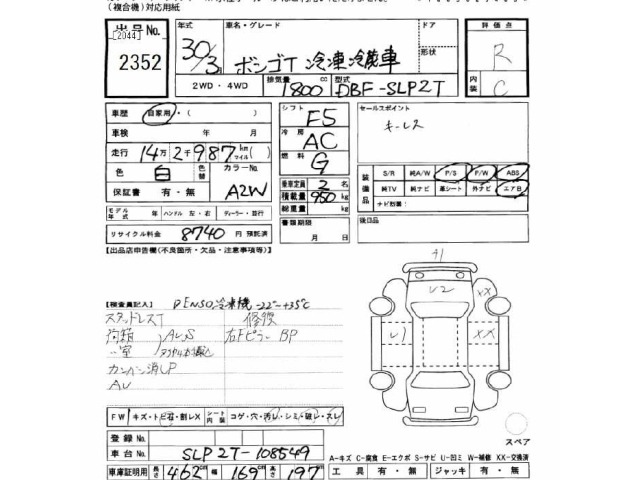 (複合機)対応用紙
出品号No.
[2044]
2352
年式
30/3月
車名・グレード
ボンゴT 冷凍冷蔵車
ドア
形状
評価点
R
内装
C
2WD・4WD
排気量
1800cc
型式
DBF-SLP2T
車歴 自家用・( )
車検 年 月
走行 14万2千987km(マイル)
色 白 色替
カラーNo.
A2W
保証書 有・無
モデル年式 年 ハンドル 左・右 ディーラー・並行
リサイクル料金 8740円 預託済
シフト
F5
冷房
AC
燃料
G
乗車定員 2名
積載量 950kg
総重量 kg
書類期限
月 日
セールスポイント
キーレス
装備品
S/R 純A/W P/S P/W ABS
純TV 純ナビ 革シート 外ナビ エアB
ナビ詳細:
後日品
【出品店申告欄(不良箇所・欠品・注意事項等)】
【検査員記入】 DENSO冷凍機 -22°~+35℃
スタッドレスT 修復
荷箱 AU,S 右Fピラー BP
〃室
カンバン消しP
AU
A1
U2
XX
U1
XX
FW キズ・ヒ召・割レX シート内装 コゲ・穴・汚レ・シミ・破レ・スレ
登録No.
車台No. SLP2T-108549
車庫証明用 長さ 462cm 幅 169cm 高さ 197cm
スペア
A-キズ C-腐食 E-エクボ S-サビ U-凹ミ W-補修 XX-交換済
工具 有・無 ジャッキ 有・無